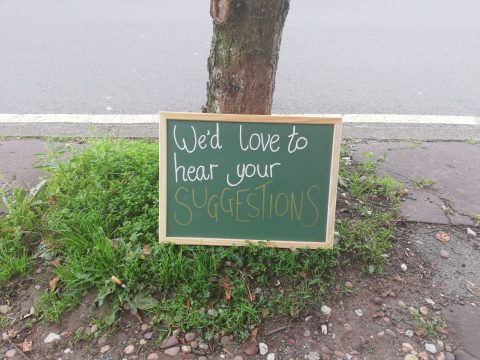 We'd love to
hear your
SUGGESTIONS